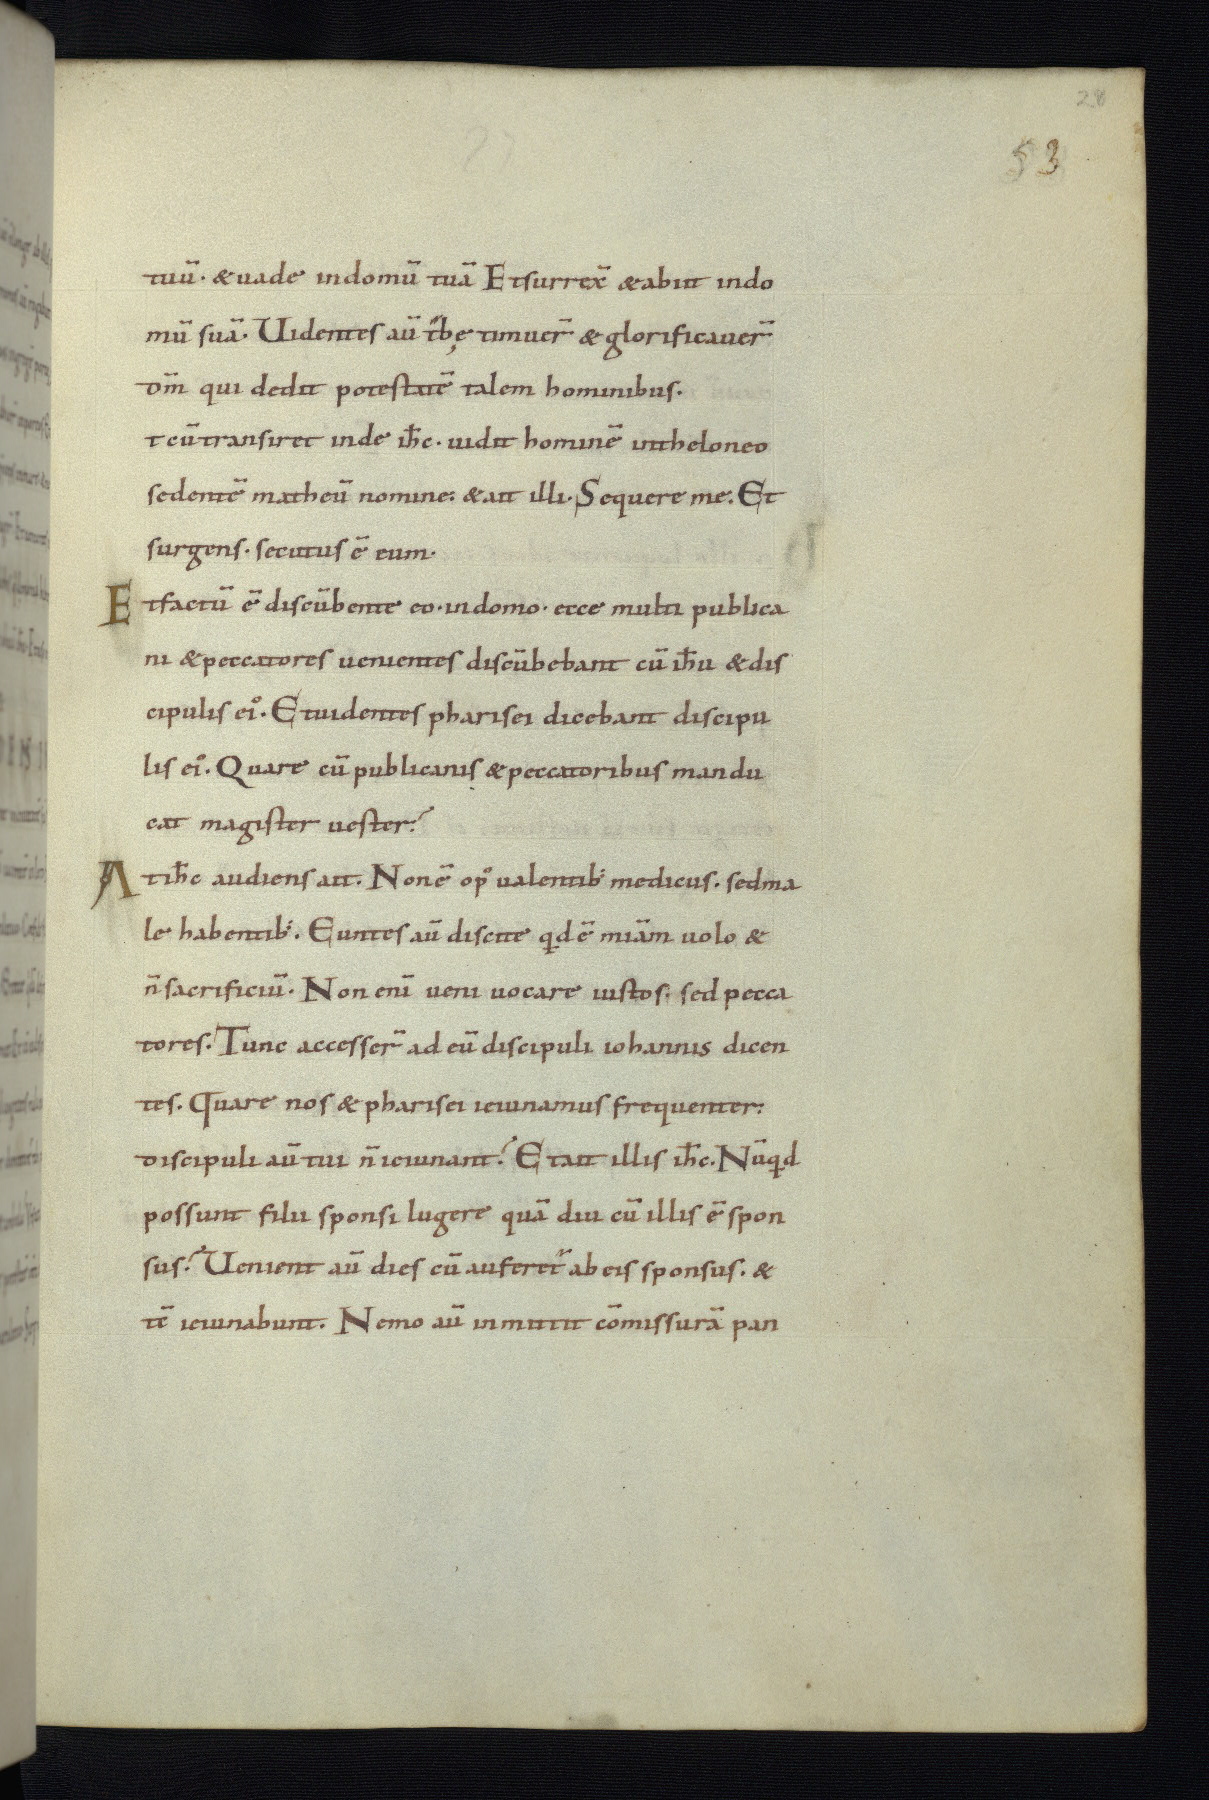 28
53
tuū· & uade in domū tuā Et surrex̄ & abiit in do
mū suā· Uidentes aū t̄bę timuer̄ & glorificauer̄
dm̄ qui dedit potestatē talem hominibus·
t cū transiret inde ih̄c· uidit hominē intheloneo
sedentē matheū nomine: & ait illi· Sequere me: Et
surgens· secutus ē eum·
Et factū ē discūbente eo· in domo· ecce multi publica
ni & peccatores uenientes discūbebant cū ih̄u & dis
cipulis ei᾽· Et uidentes pharisei dicebant discipu
lis ei᾽· Quare cū publicanis & peccatoribus mandu
cat magister uester?
At ih̄c audiens ait· Non ē op᾽ ualentib; medicus· sed ma
le habentib;· Euntes aū discite qd ē miām uolo &
n̄ sacrificiū· Non enī ueni uocare iustos· sed pecca
tores· Tunc accesser̄ ad eū discipuli iohannis dicen
tes· Quare nos & pharisei ieiunamus frequenter:
discipuli aū tui n̄ ieiunant? Et ait illis ih̄c· Nūqd
possunt filii sponsi lugere quā diu cū illis ē spon
sus? Uenient aū dies cū auferet̄ ab eis sponsus· &
tē ieiunabunt· Nemo aū inmittit cōmissurā pan